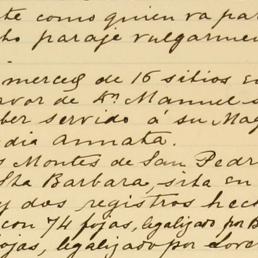 te como quien va par
ho paraje vulgarmen
merced de 16 sitios en
avor de Dn Manuel
ber servido á su Mag
dia annata.
s Montes de San Pedr
Sta Barbara, sita en
y dos registros hech
con 74 fojas, legalizado por B
ojas, legalizado por Lore